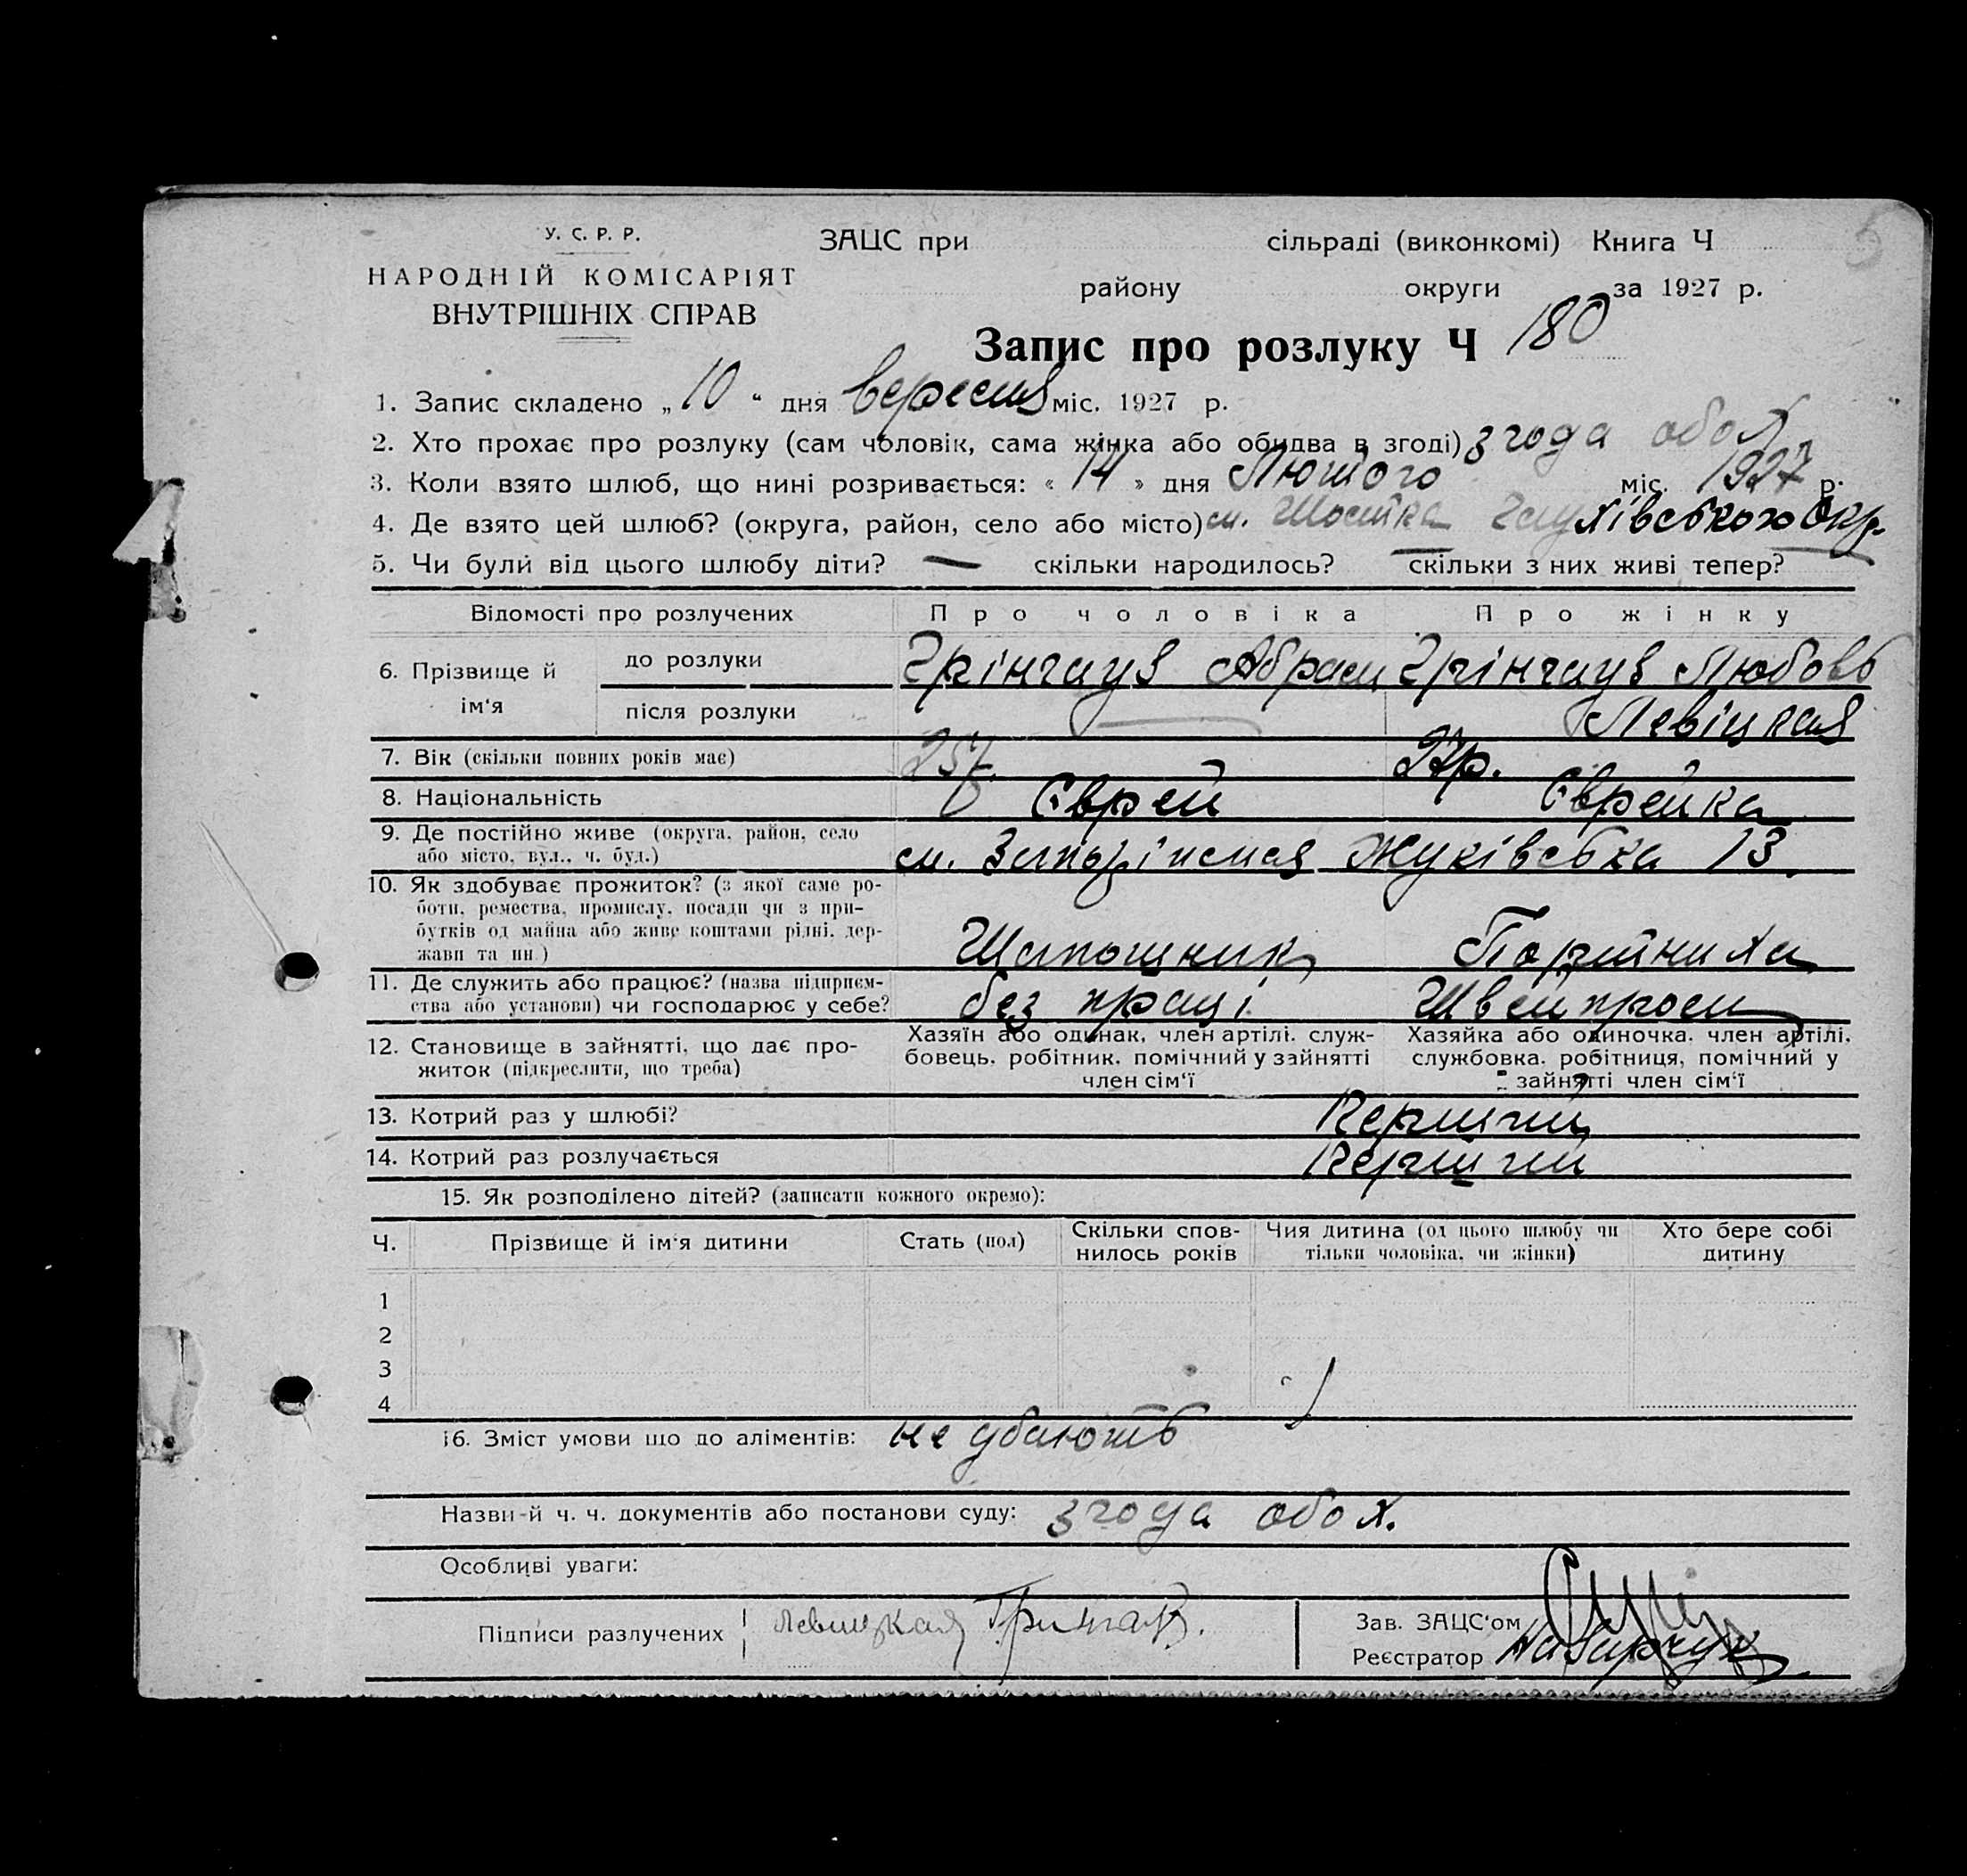 У. С. Р. Р.
НАРОДНІЙ КОМІСАРІЯТ
ВНУТРІШНІХ СПРАВ
ЗАЦС при сільраді (виконкомі) Книга Ч
району округи за 1927 р.
5
Запис про розлуку Ч 180
1. Запис складено „10“ дня вересня міс. 1927 р.
2. Хто прохає про розлуку (сам чоловік, сама жінка або обидва в згоді) згода обох
3. Коли взято шлюб, що нині розривається: «14» дня Лютого міс. 1927 р.
4. Де взято цей шлюб? (округа, район, село або місто) м. Шостка Глухівської Окр.
5. Чи були від цього шлюбу діти? — скільки народилось? — скільки з них живі тепер? —
Відомості про розлучених Про чоловіка Про жінку
6. Прізвище й ім‘я
до розлуки Грінгауз Абрам Грінгауз Любовь
після розлуки — Левіцкая
7. Вік (скільки повних років має) 27р.
8. Національність Єврей Єврейка
9. Де постійно живе (округа, район, село або місто, вул., ч. буд.)
м. Запоріжжя Жуківська 13.
10. Як здобуває прожиток? (з якої саме ро-
боти, ремества, промислу, посади чи з при-
бутків од майна або живе коштами рідні, дер-
жави та ин.) Шапошник Портниха
11. Де служить або працює? (назва підприєм-
ства або установи) чи господарює у себе? без праці Швейпром
12. Становище в зайнятті, що дає про-
житок (підкреслити, що треба)
Хазяїн або одинак, член артілі, служ-
бовець, робітник, помічний у зайнятті
член сім‘ї
Хазяйка або одиночка, член артілі,
службовка, робітниця, помічний у
зайнятті член сім‘ї
13. Котрий раз у шлюбі? Перший
14. Котрий раз розлучається Перший
15. Як розподілено дітей? (записати кожного окремо):
Ч. Прізвище й ім‘я дитини Стать (пол) Скільки спов-
нилось років Чия дитина (од цього шлюбу чи
тільки чоловіка, чи жінки) Хто бере собі
дитину
1
2
3
4
16. Зміст умови що до аліментів: не дбають
Назви й ч. ч. документів або постанови суду: згода обох.
Особливі уваги:
Підписи разлучених Левицкая Грингауз.
Зав. ЗАЦС‘ом
Реєстратор Назарчук